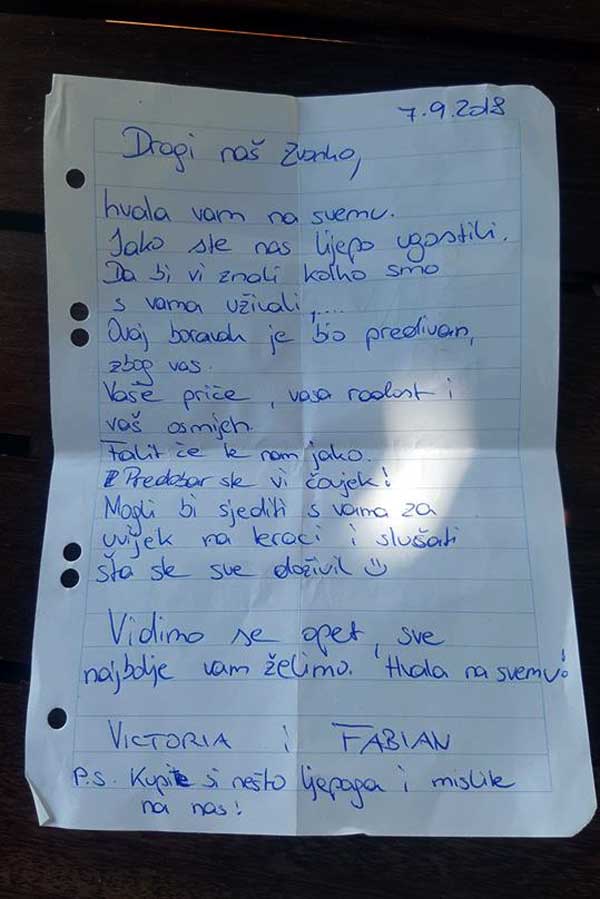 7.9.2018
Dragi naš Zvonko,
hvala vam na svemu.
Jako ste nas lijepo ugostili.
Da bi vi znali kolko smo
s vama uživali,....
Ovaj boravak je bio predivan,
zbog vas.
Vaše priče, vasa radost i
vaš osmijeh.
Falit će te nam jako.
Predobar ste vi čovjek!
Mogli bi sjediti s vama za
uvijek na teraci i slušati
šta ste sve doživil ☺
Vidimo se opet, sve
najbolje vam želimo. Hvala na svemu!
VICTORIA i FABIAN
P.S. Kupite si nešto ljepoga i mislite
na nas!